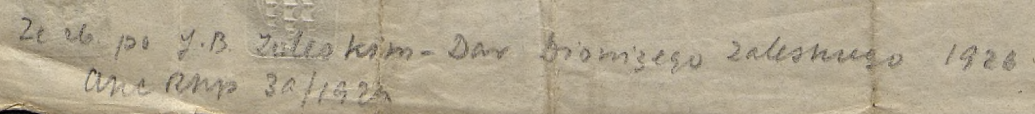 Ze zb. po J.B. Zaleskim - Dar Dionizego Zaleskiego 1926
akc Rkp 30/192